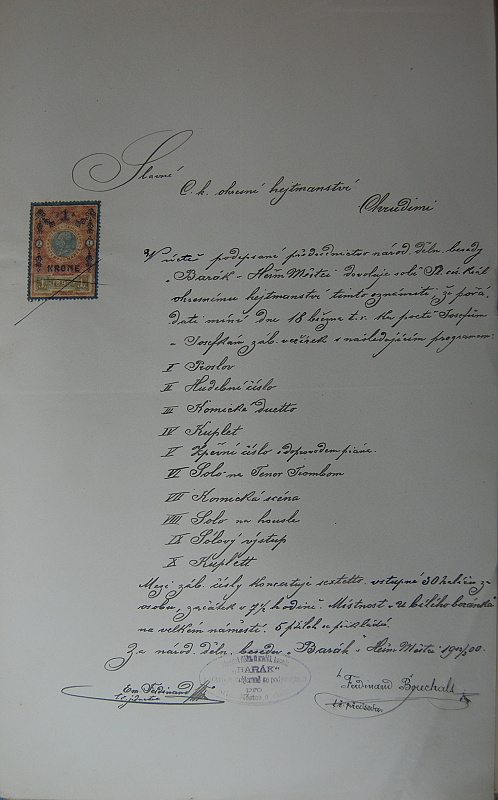 Slavné
C. k. okresní hejtmanství
Chrudimi
1
KRONE
V úctě podepsané předsednictvo národ. děln. besedy
"Barák" Heřm Městec dovoluje sobě
okresnímu hejtmanství tímto oznámiti, že pořá-
dati míní dne 18 března t.r. ku poctě Josefům
- Josefkám záb. večírek s následujícím programem:
I Proslov
II Hudební číslo
III Komické duetto
IV Kuplet
V Zpěvní číslo s doprovodem piána.
VI Solo na Tenor Trombon
VII Komická scéna
VIII Solo na housle
IX Sólový výstup
X Kuplett
Mezi záb. čísly koncertuje sextetto. vstupné 30 haléřů za
osobu, začátek v hodině. Místnost "u bílého beránka"
na velkém náměstí. 5 příloh se přikládá.
Za národ. děln. besedu "Barák" Heřm Městec
"BARÁK"
pro
Em Ferdinand
Ferdinand Bouchal